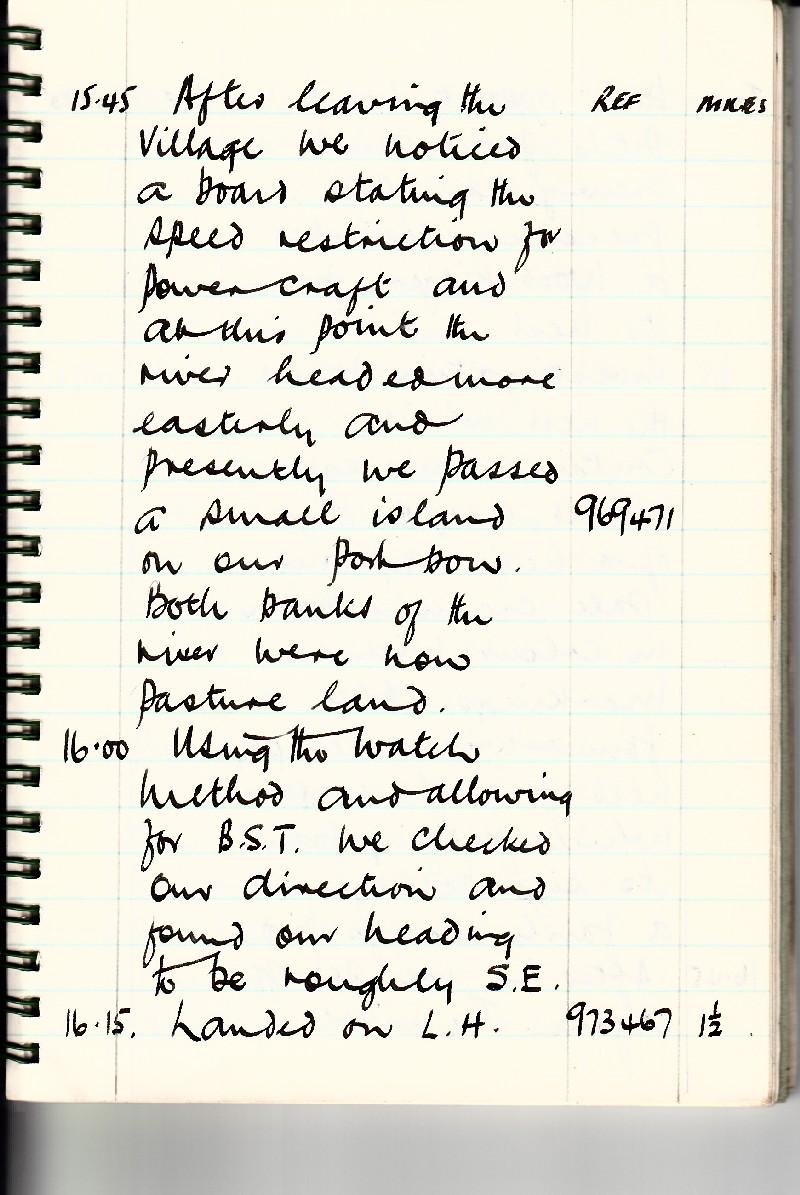 15.45 After leaving the REF MILES
Village we noticed
a board stating the
speed restriction for
power craft and
at this point the
river headed more
easterly and
presently we passed
a small island 969471
on our port bow.
Both banks of the
river were now
pasture land.
16.00 Using the watch
method and allowing
for B.S.T. we checked
our direction and
found our heading
to be roughly S.E.
16.15. Landed on L.H. 973467 1½